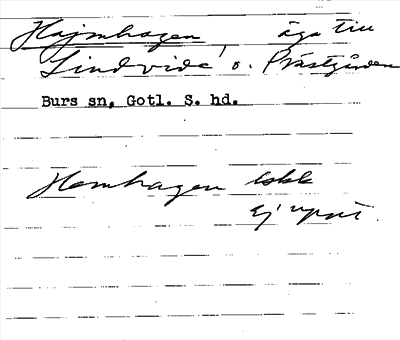 Hajmhagen, äga till
Lindvide o. Prästgården
Burs sn, Gotl. S. hd.
Hemhagen lokk
ej uppt.